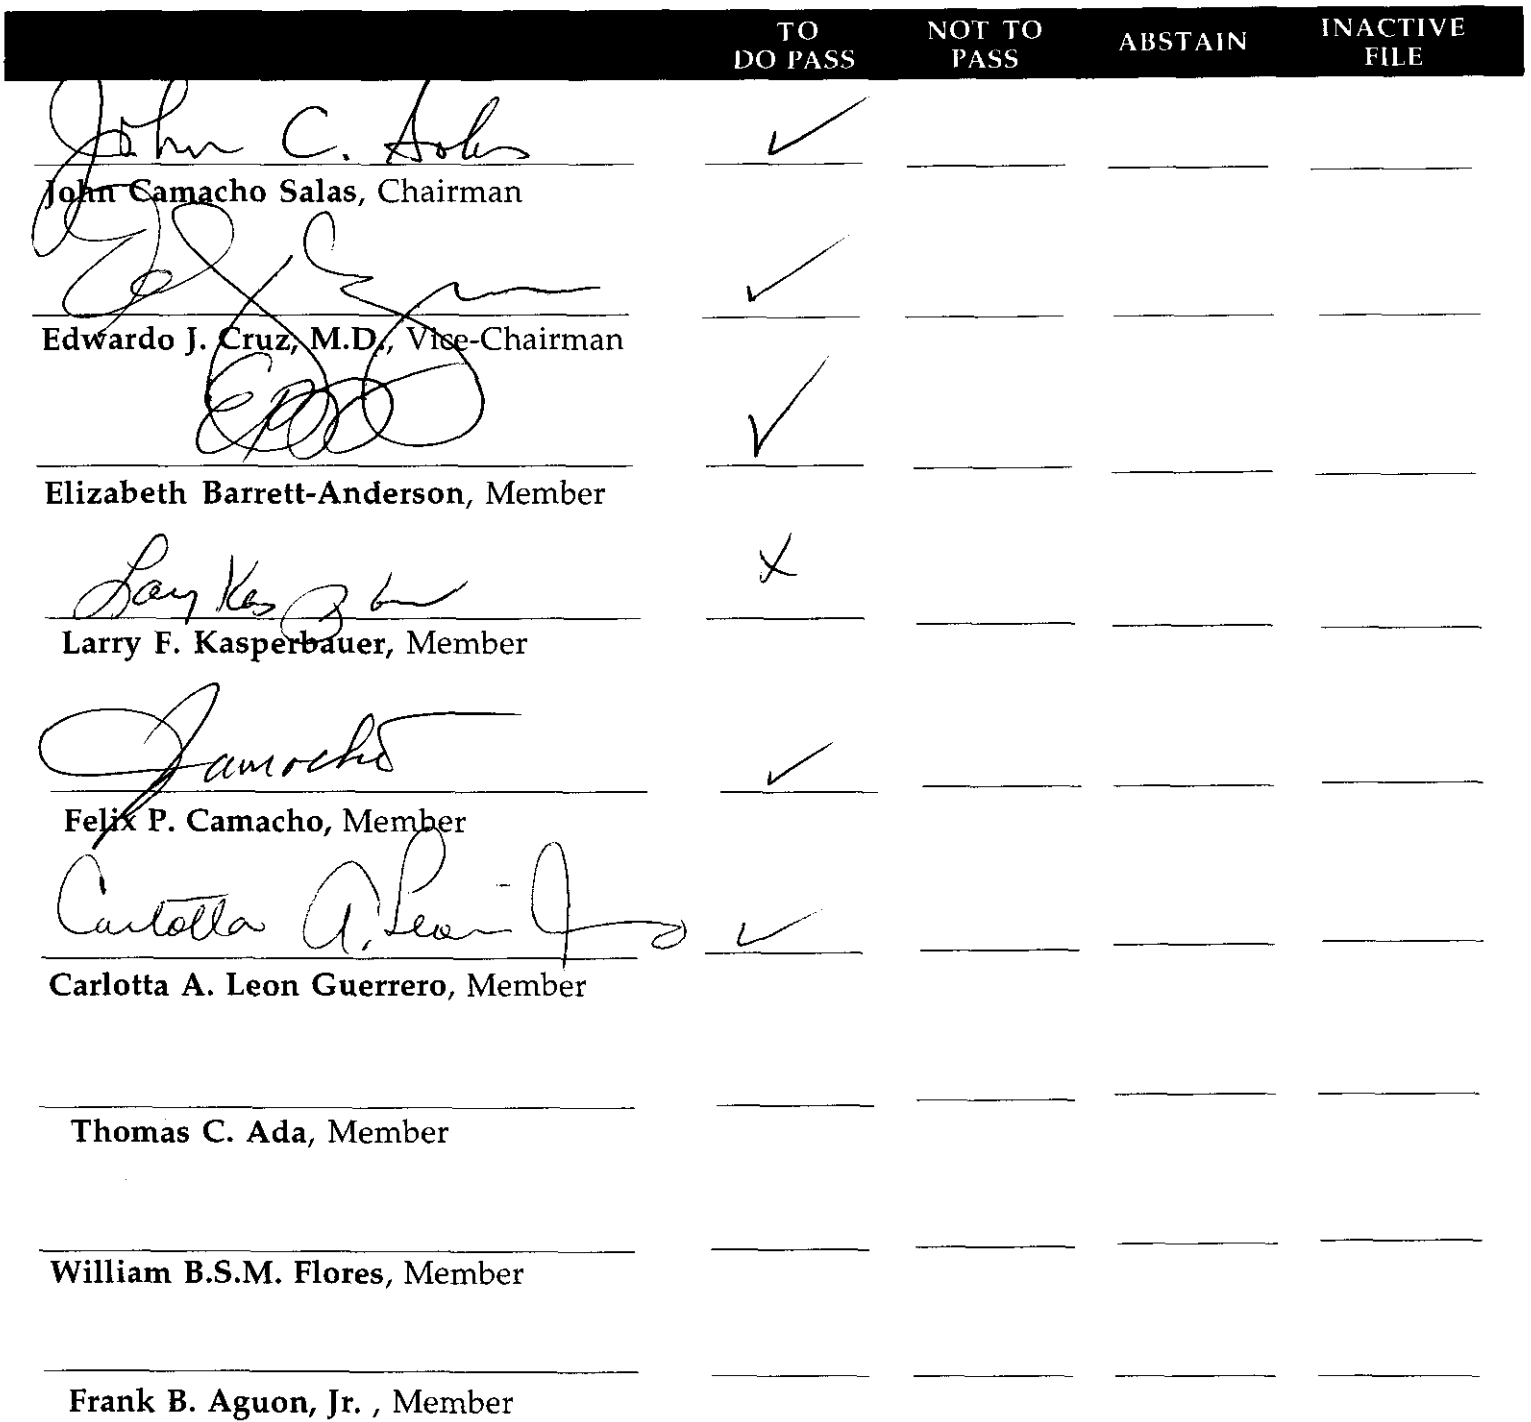 TO DO PASS NOT TO PASS ABSTAIN INACTIVE FILE
John C. Salas ✓
John Camacho Salas, Chairman
✓
Edwardo J. Cruz, M.D., Vice-Chairman
✓
Elizabeth Barrett-Anderson, Member
Larry Kasperbauer X
Larry F. Kasperbauer, Member
Camacho ✓
Felix P. Camacho, Member
Carlotta A. Leon ✓
Carlotta A. Leon Guerrero, Member
Thomas C. Ada, Member
William B.S.M. Flores, Member
Frank B. Aguon, Jr. , Member